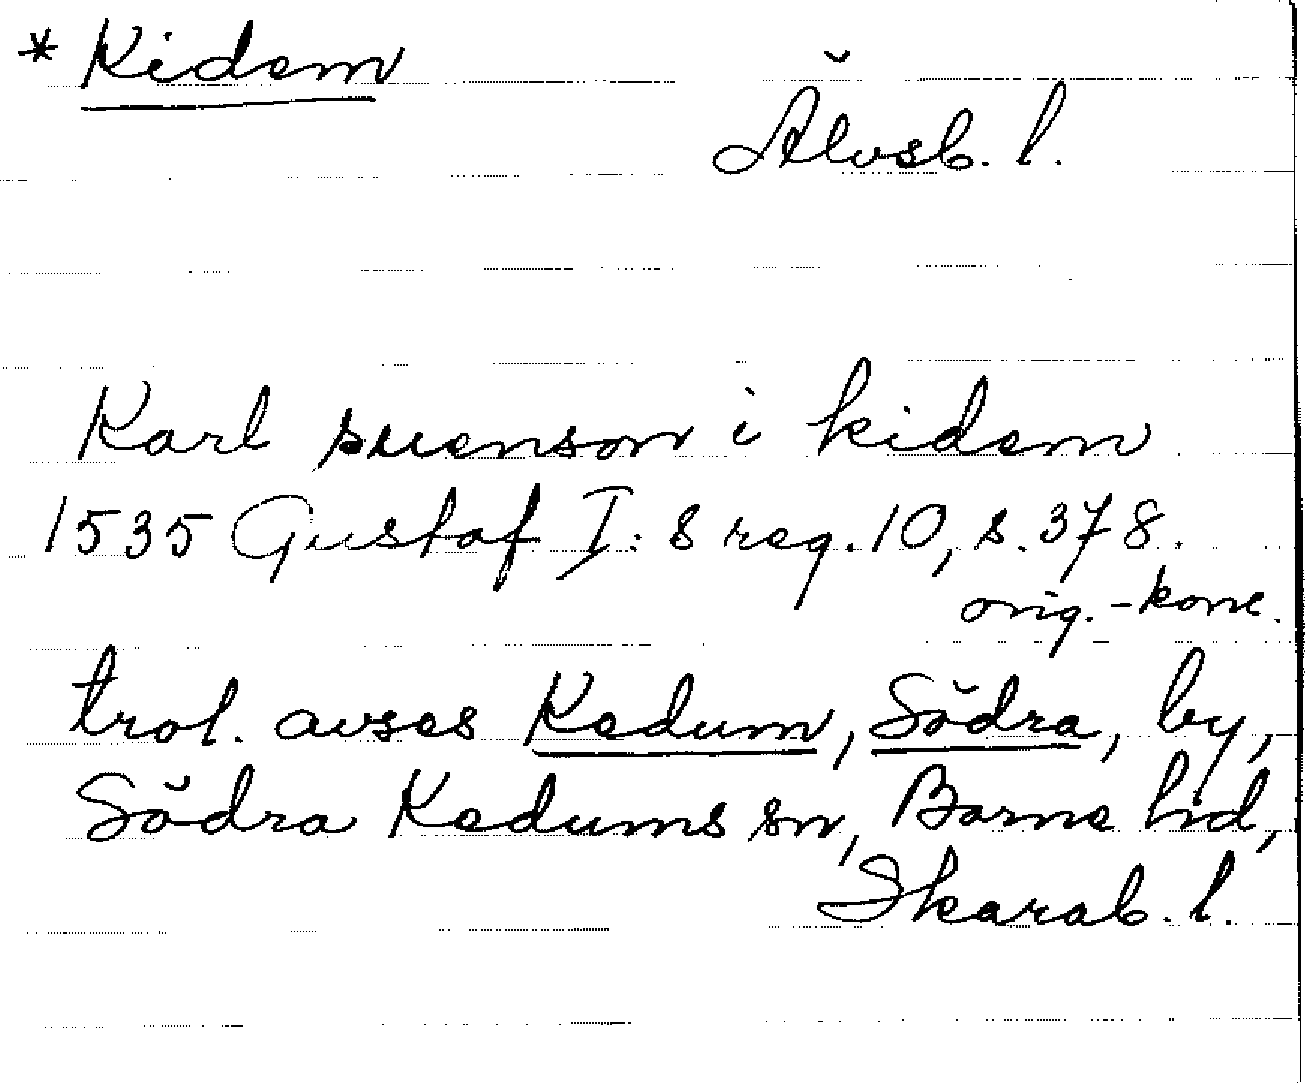 * Kidem
Älvsb. l.
Karl suenson i kidem
1535 Gustaf I:s reg. 10, s. 378.
orig.-konc.
trol. avses Kedum, Södra, by,
Södra Kedums sn, Barne hd,
Skarab. l.